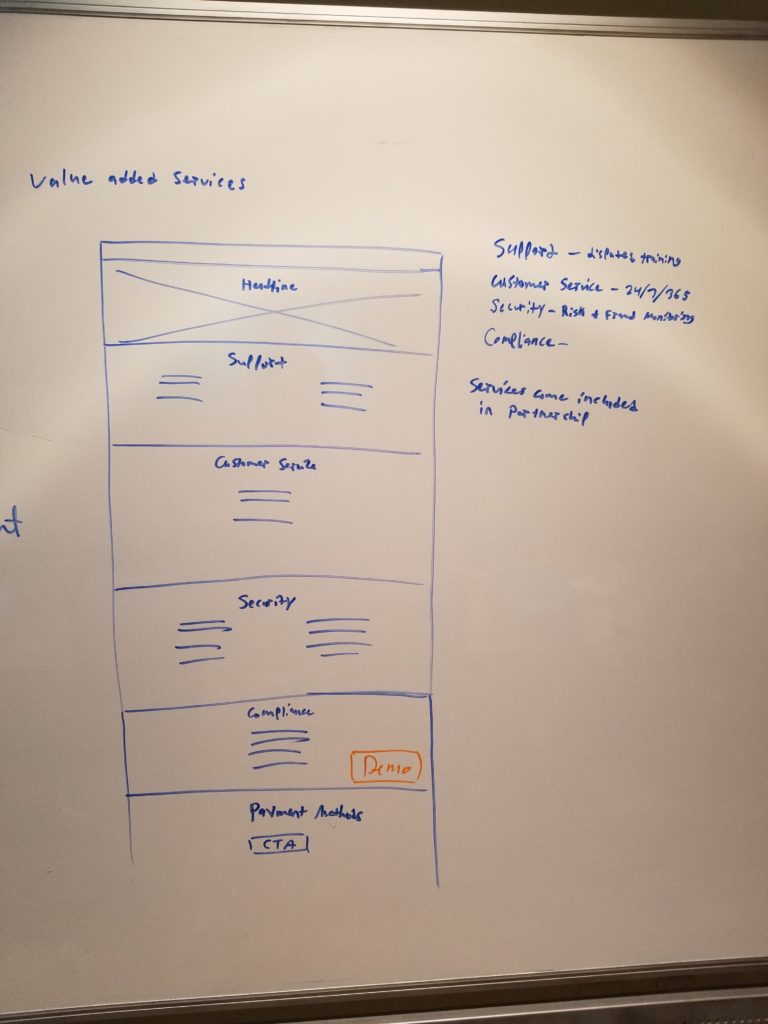 Value added services
Headline
Support
Customer Service
Security
Compliance
Demo
Payment Methods
CTA
Support – disputes, training
Customer Service – 24/7/365
Security – Risk & Fraud Monitoring
Compliance –
Services come included
in Partnership
nt